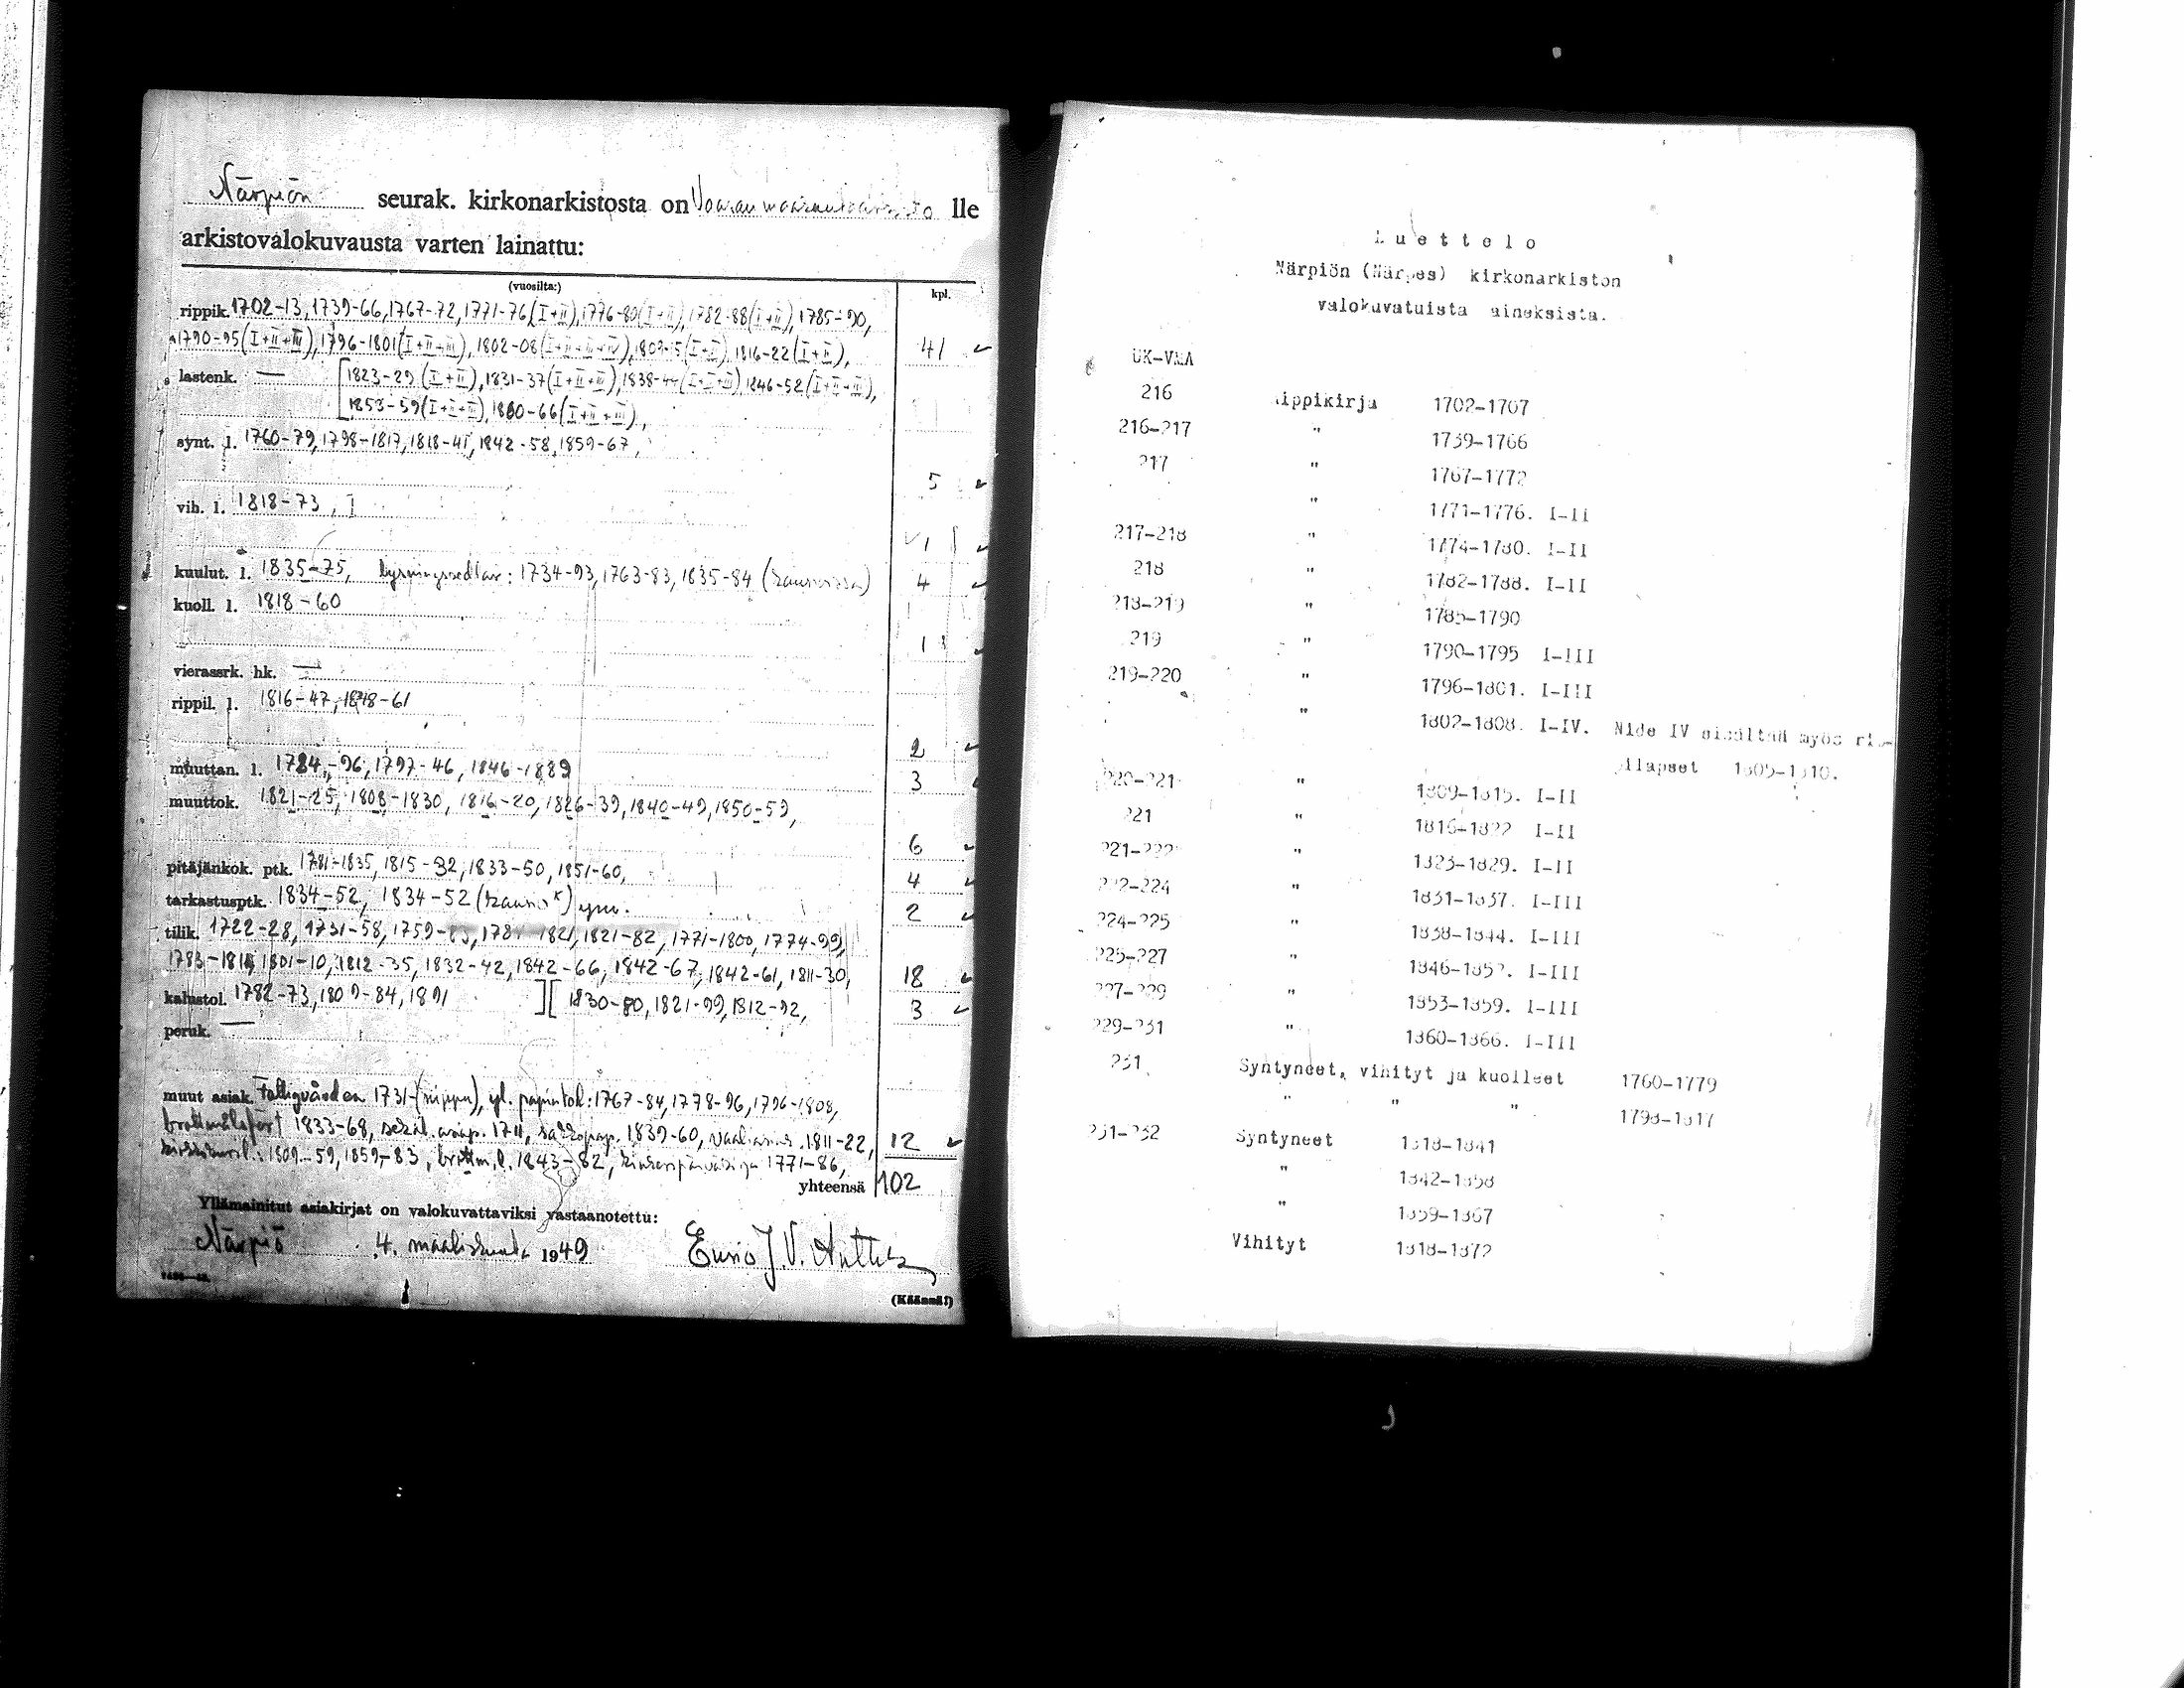 Närpiön seurak. kirkonarkistosta on Vaasan maakunta-arkisto lle
arkistovalokuvausta varten lainattu:
(vuosilta:) kpl.
rippik. 1702-13, 1739-66, 1767-72, 1771-76 (I+II), 1776-80 (I+II), 1782-88 (I+II), 1785-90,
1790-95 (I+II+III), 1796-1801 (I+II+III), 1802-08 (I+II+III+IV), 1809-15 (I+II), 1816-22 (I+II), 41 ✓
lastenk. — [1823-29 (I+II), 1831-37 (I+II+III), 1838-44 (I+II+III), 1846-52 (I+II+III),
1853-59 (I+II+III), 1860-66 (I+II+III),
synt. l. 1760-79, 1798-1817, 1818-41, 1842-58, 1859-67,
5 ✓
vih. l. 1818-73, I
1 ✓
kuulut. l. 1835-75, lysningssedlar: 1734-93, 1763-83, 1835-84 4 ✓
kuoll. l. 1818-60
1 ✓
vierassrk. hk. —
rippil. l. 1816-47, 1848-61
2 ✓
muuttan. l. 1784-96, 1797-46, 1846-1889 3 ✓
muuttok. 1821-25, 1808-1830, 1816-20, 1826-39, 1840-49, 1850-59,
6 ✓
pitäjänkok. ptk. 1781-1835, 1815-32, 1833-50, 1851-60, 4 ✓
tarkastusptk. 1834-52, 1834-52 2 ✓
tilik. 1722-28, 1731-58, 1821-82, 1771-1800, 1774-99,
1801-10, 1812-35, 1832-42, 1842-66, 1842-67, 1842-61, 1811-30, 18 ✓
kalustol. 1782-73, 1809-84, 1891 ][ 1830-80, 1821-99, 1812-92, 3 ✓
peruk. —
muut asiak. 1731- (nippu), yl. 1767-84, 1778-96, 1796-1808,
1833-68, 1711, 1839-60, 1811-22, 12 ✓
1809-59, 1859-83, 1843-82, 1771-86,
yhteensä 102
Yllämainitut asiakirjat on valokuvattaviksi vastaanotettu:
Närpiö 4. maaliskuuta 1949
(Käännä!)
Luettelo
Närpiön (Närpes) kirkonarkiston
valokuvatuista aineksista.
UK-VMA
216 Rippikirja 1702-1707
216-217 " 1739-1766
217 " 1767-1772
" 1771-1776. I-II
217-218 " 1774-1780. I-II
218 " 1782-1788. I-II
218-219 " 1785-1790
219 " 1790-1795 I-III
219-220 " 1796-1801. I-III
" 1802-1808. I-IV. Nide IV sisältää myös rip-
pilapset 1805-1810.
220-221 " 1809-1815. I-II
221 " 1816-1822 I-II
221-222 " 1823-1829. I-II
222-224 " 1831-1837. I-III
224-225 " 1838-1844. I-III
225-227 " 1846-1852. I-III
227-229 " 1853-1859. I-III
229-231 " 1860-1866. I-III
231 Syntyneet, vihityt ja kuolleet 1760-1779
" " " 1798-1817
231-232 Syntyneet 1818-1841
" 1842-1858
" 1859-1867
Vihityt 1818-1872